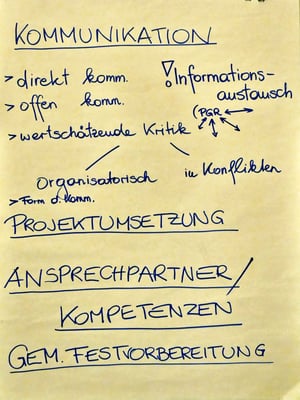 KOMMUNIKATION
> direkt komm.
! Informations-
austausch
> offen komm.
(PGR
> wertschätzende Kritik
Organisatorisch
in Konflikten
> Form d. Komm.
PROJEKTUMSETZUNG
ANSPRECHPARTNER/
KOMPETENZEN
GEM. FESTVORBEREITUNG